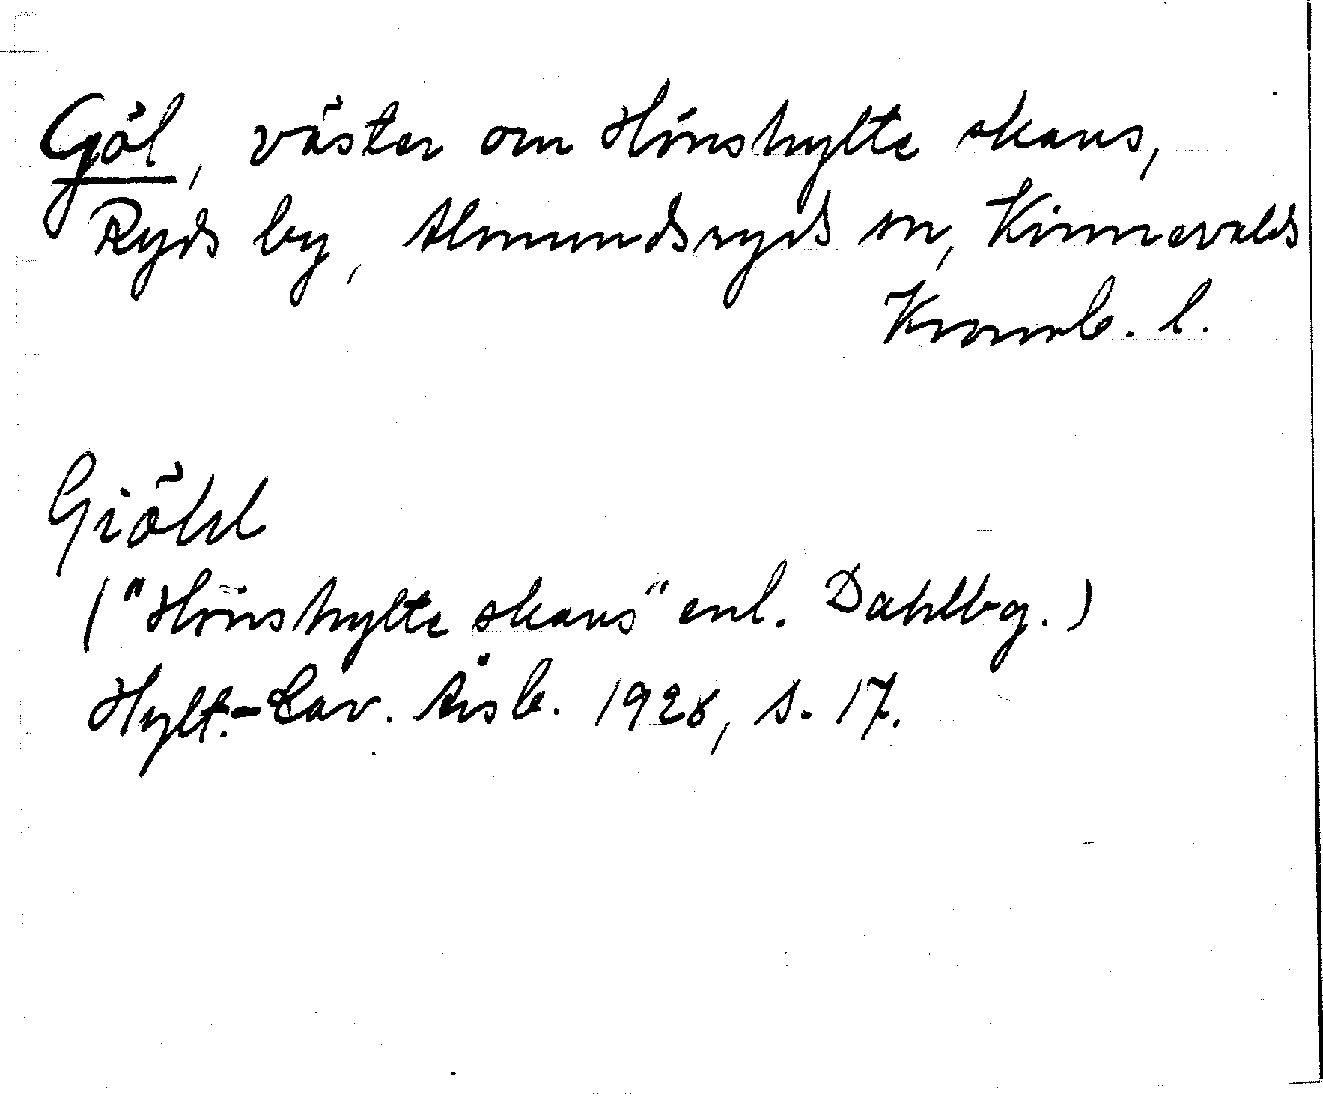 Göl, väster om Hönshylte skans,
Ryds by, Almundsryds sn, Kinnevalds
Kronob. l.
Giöhl
("Hönshylte skans" enl. Dahlbg.)
Hylt.-Cav. Årsb. 1926, s. 17.